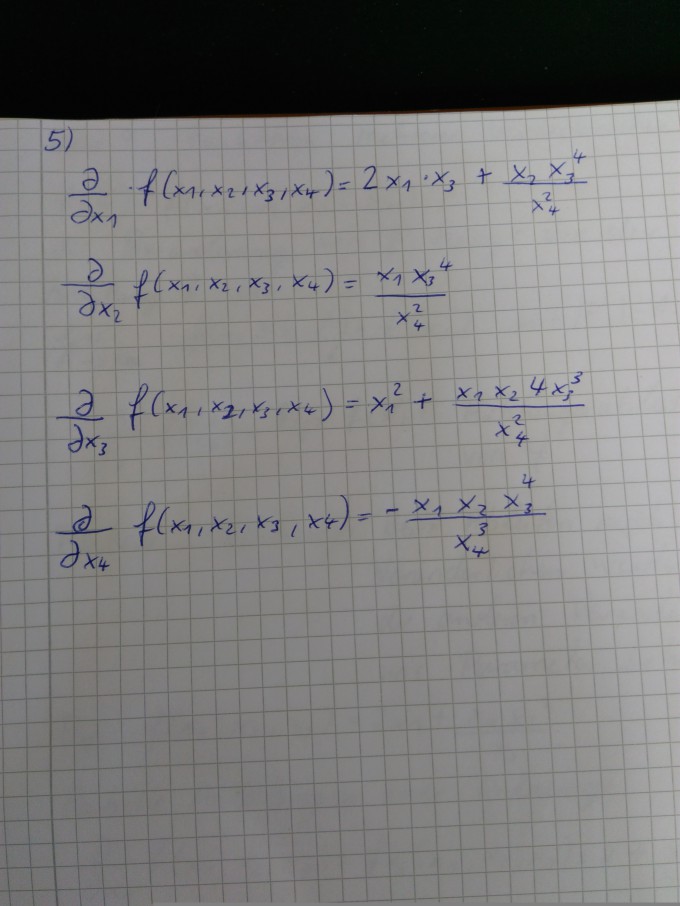 5)
∂/∂x₁ · f(x₁, x₂, x₃, x₄) = 2x₁ · x₃ + x₂ x₃⁴ / x₄²
∂/∂x₂ f(x₁, x₂, x₃, x₄) = x₁ x₃⁴ / x₄²
∂/∂x₃ f(x₁, x₂, x₃, x₄) = x₁² + x₁ x₂ 4x₃³ / x₄²
∂/∂x₄ f(x₁, x₂, x₃, x₄) = - x₁ x₂ x₃⁴ / x₄³